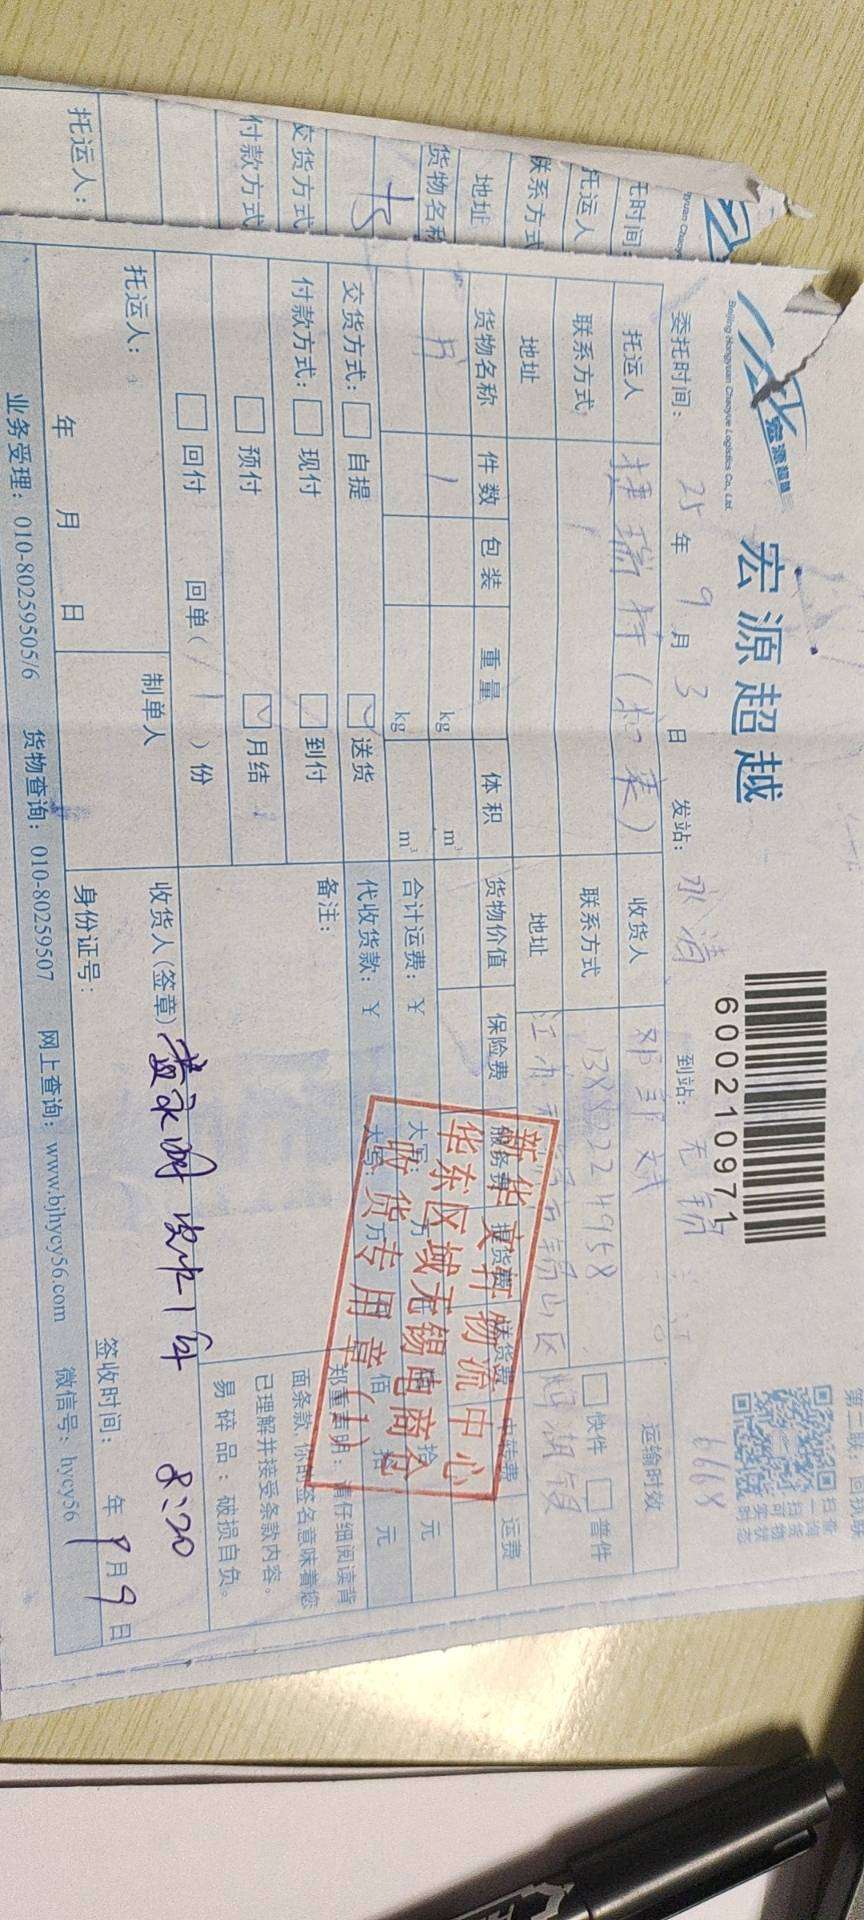 宏源超越
宏源超越
Beijing Hongyuan Chaoyue Logistics Co., Ltd.
600210971
第二联：回
委托时间： 25 年 9 月 3 日 发站： 永清 到站： 无锡
6668
托运人 捷瑞特( 收货人 邓 运输时效
联系方式 联系方式 13822249158 快件 普件
地址 地址 江 无锡市锡山区
货物名称 件数 包装 重量 体积 货物价值 保险费 服务费 提货费 送货费 中转费 运费
书 1 kg m³
kg m³ 合计运费：￥ 大写： 万 拾 元
交货方式： 自提 送货 代收货款：￥ 大写： 万 佰 拾 元
付款方式： 现付 到付 备注：
预付 月结
回付 回单( 1 )份
郑重声明：请仔细阅读背
面条款 你的签名意味着您
已理解并接受条款内容。
易碎品：破损自负。
新华文轩物流中心
华东区域无锡电商仓
收货专用章(1)
托运人： 制单人 收货人(签章) 收1件 8:20
年 月 日 身份证号： 签收时间： 年 9 月 9 日
业务受理：010-80259505/6 货物查询：010-80259507 网上查询：www.bjhycy56.com 微信号：hycy56
托时间：
托运人
联系方式
地址
货物名称
书
交货方式
付款方式
托运人：